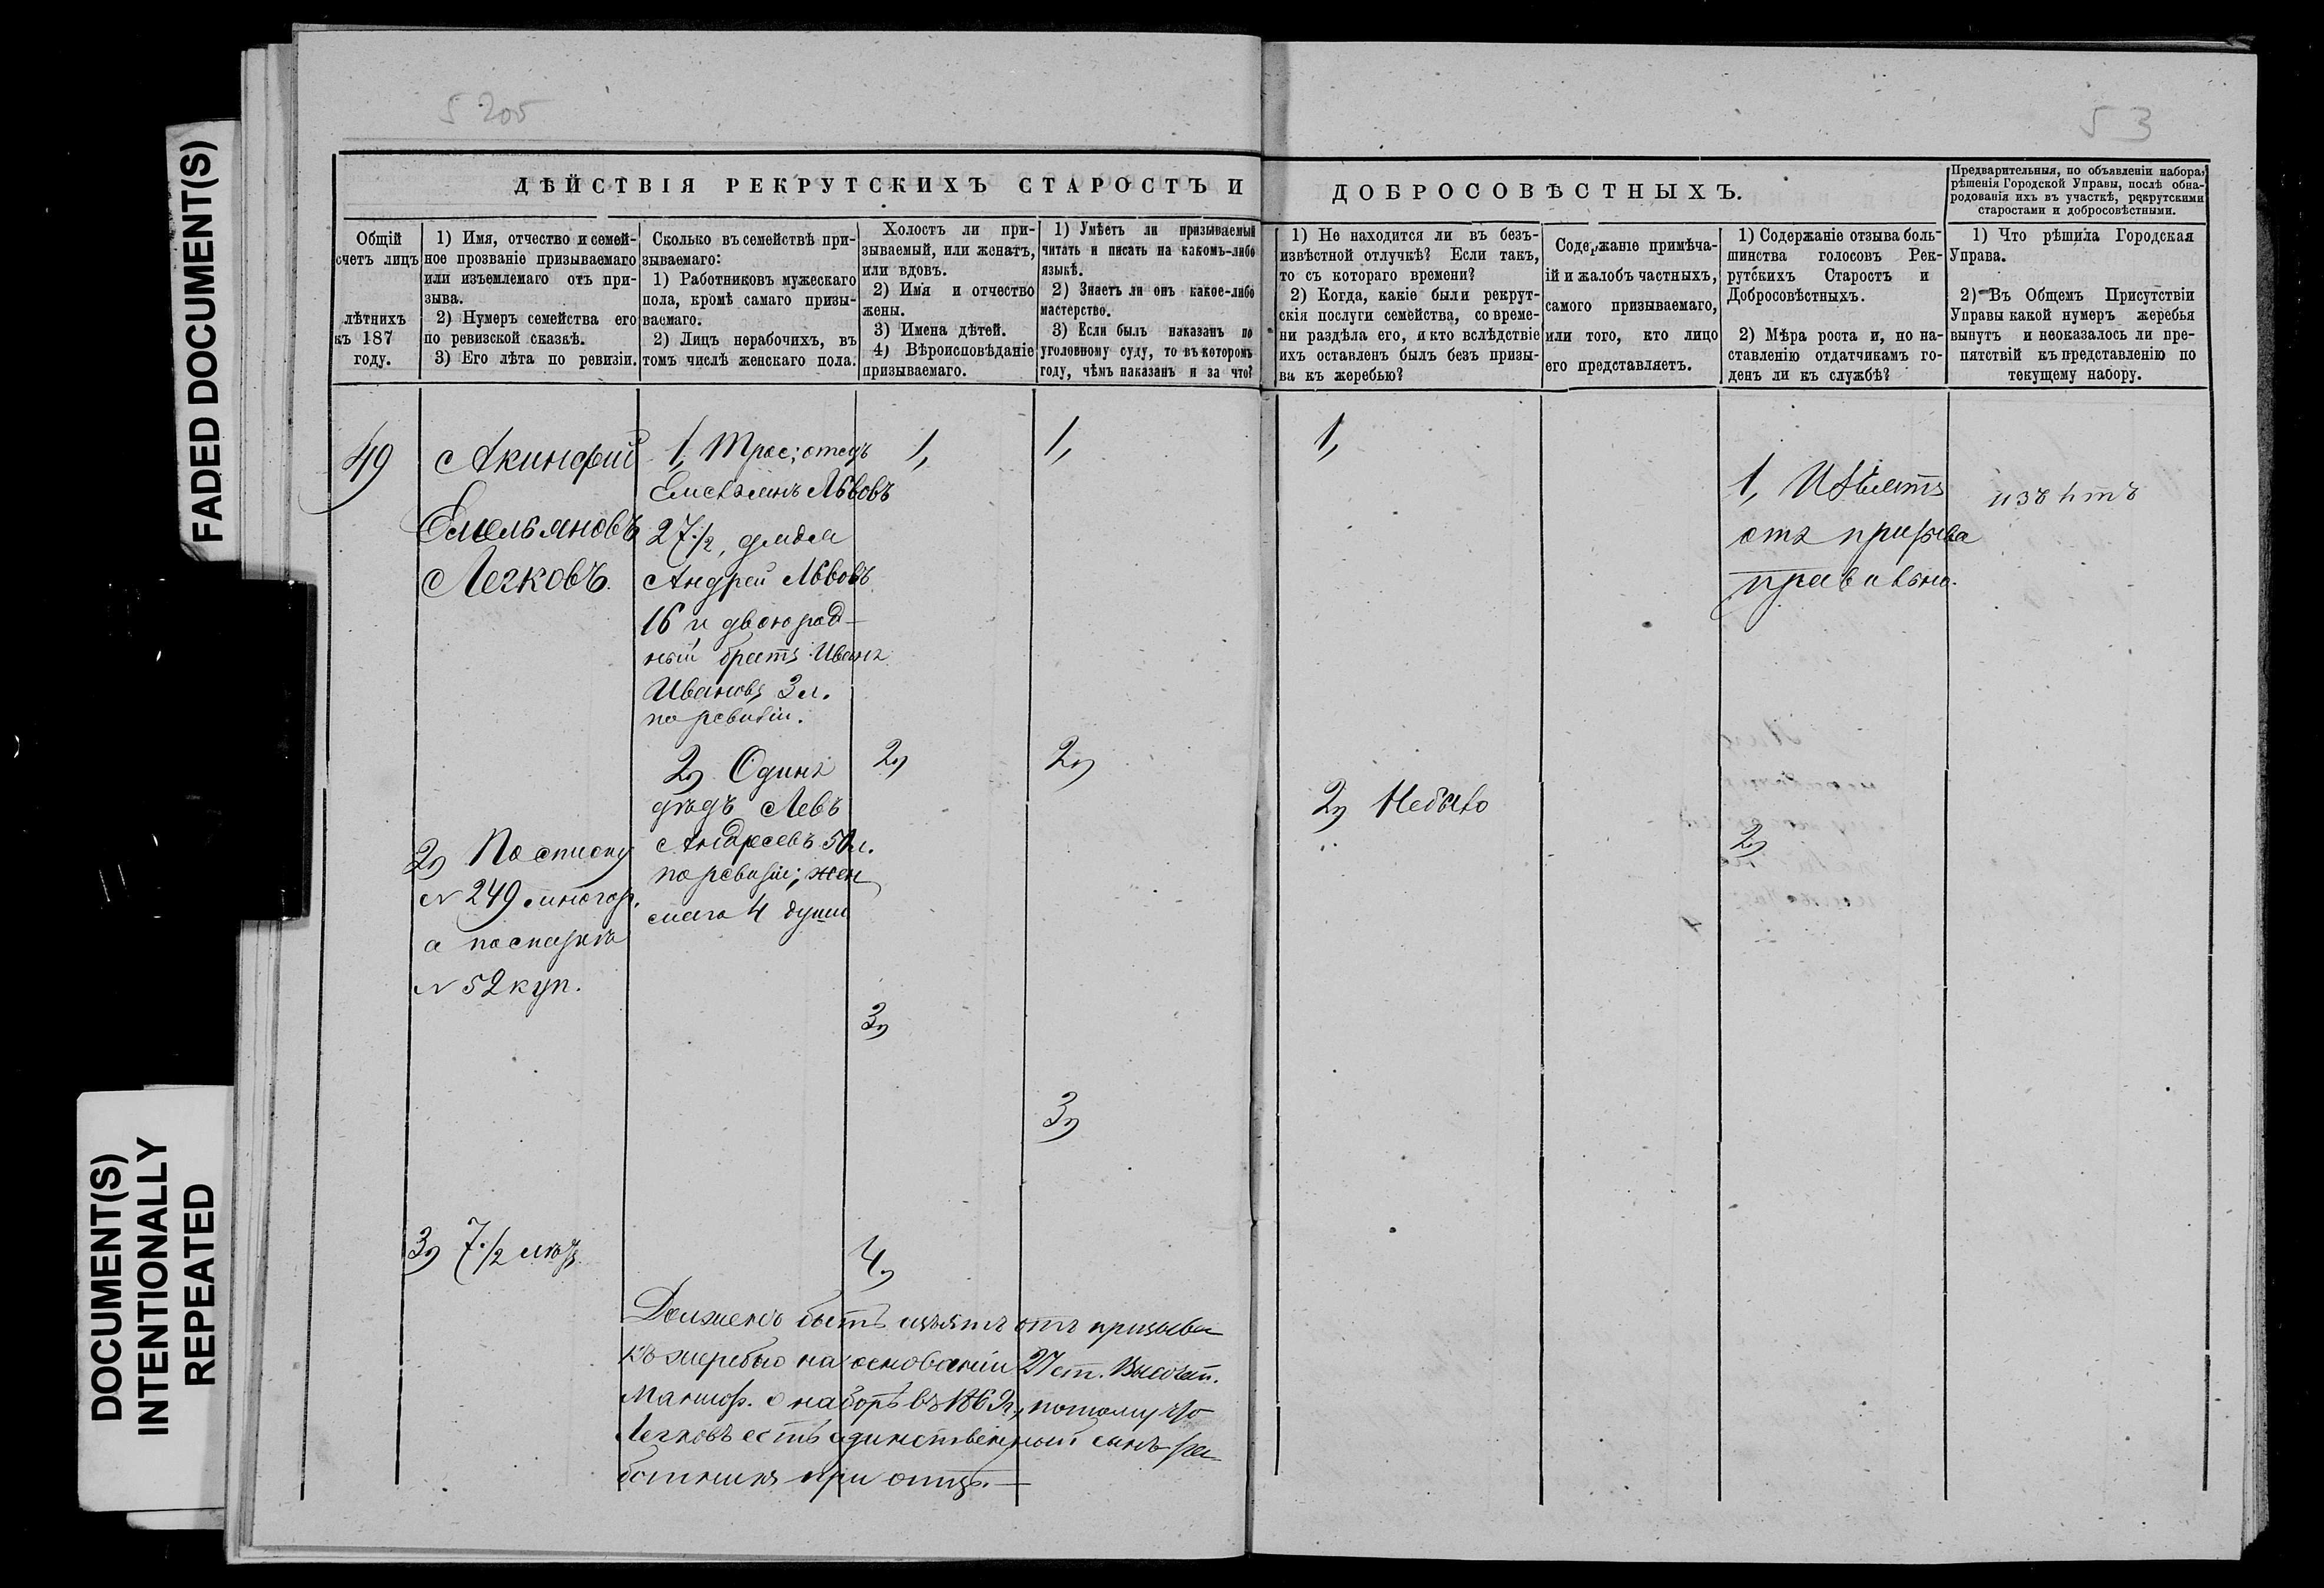 FADED DOCUMENT(S)
DOCUMENT(S)
INTENTIONALLY
REPEATED
5 205
53
ДѢЙСТВІЯ РЕКРУТСКИХЪ СТАРОСТЪ И
ДОБРОСОВѢСТНЫХЪ.
Предварительныя, по объявленіи набора,
рѣшенія Городской Управы, послѣ обна-
родованія ихъ въ участкѣ, рекрутскими
старостами и добросовѣстными.
Общій
счетъ лицъ
лѣтнихъ
къ 187
году.
1) Имя, отчество и семей-
ное прозваніе призываемаго
или изъемлемаго отъ при-
зыва.
2) Нумеръ семейства его
по ревизской сказкѣ.
3) Его лѣта по ревизіи.
Сколько въ семействѣ при-
зываемаго:
1) Работниковъ мужескаго
пола, кромѣ самаго призы-
ваемаго.
2) Лицъ нерабочихъ, въ
томъ числѣ женскаго пола.
Холостъ ли при-
зываемый, или женатъ,
или вдовъ.
2) Имя и отчество
жены.
3) Имена дѣтей.
4) Вѣроисповѣданіе
призываемаго.
1) Умѣетъ ли призываемый
читать и писать на какомъ-либо
языкѣ.
2) Знаетъ ли онъ какое-либо
мастерство.
3) Если былъ наказанъ по
уголовному суду, то въ которомъ
году, чѣмъ наказанъ и за что?
1) Не находится ли въ безъ-
извѣстной отлучкѣ? Если такъ,
то съ котораго времени?
2) Когда, какіе были рекрут-
скія послуги семейства, со време-
ни раздѣла его, и кто вслѣдствіе
ихъ оставленъ былъ безъ призы-
ва къ жеребью?
Содержаніе примѣча-
ій и жалобъ частныхъ,
самого призываемаго,
или того, кто лицо
его представляетъ.
1) Содержаніе отзыва боль-
шинства голосовъ Рек-
рутскихъ Старостъ и
Добросовѣстныхъ.
2) Мѣра роста и, по на-
ставленію отдатчикамъ го-
денъ ли къ службѣ?
1) Что рѣшила Городская
Управа.
2) Въ Общемъ Присутствіи
Управы какой нумеръ жеребья
вынутъ и неоказалось ли пре-
пятствій къ представленію по
текущему набору.
49
Акинфий
Емельяновъ
Легковъ.
2) По списку
N 249
а по сказкѣ
N 52 куп.
3) 7½ лѣтъ
1, Трое; отецъ
Емельянъ Львовъ
27½, дядя
Андрей Львовъ
16 и двоюрод-
ный братъ Иванъ
Ивановъ 3 л.
по ревизіи.
2) Одинъ
дѣдъ Левъ
Андреевъ 50 л.
по ревизіи; жен
скаго 4 души
1,
2)
3)
4)
1,
2)
3)
Долженъ быть изъятъ отъ призыва
къ жеребью на основаніи 27 ст. Высочайш.
Манифес. о наборѣ въ 1869 г., потому что
Легковъ есть единственный сынъ ра
ботникъ при отцѣ.—
1,
2) Небыло
1, Изъятъ
отъ призыва
правильно.
2)
изъятъ